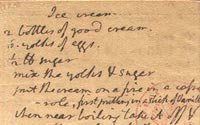 Ice cream.
2 bottles of good cream.
6. yolks of eggs.
1/2 lb sugar
mix the yolks & sugar
put the cream on a fire in a casse
-role, first putting in a stick of Vanilla
when near boiling take it off &